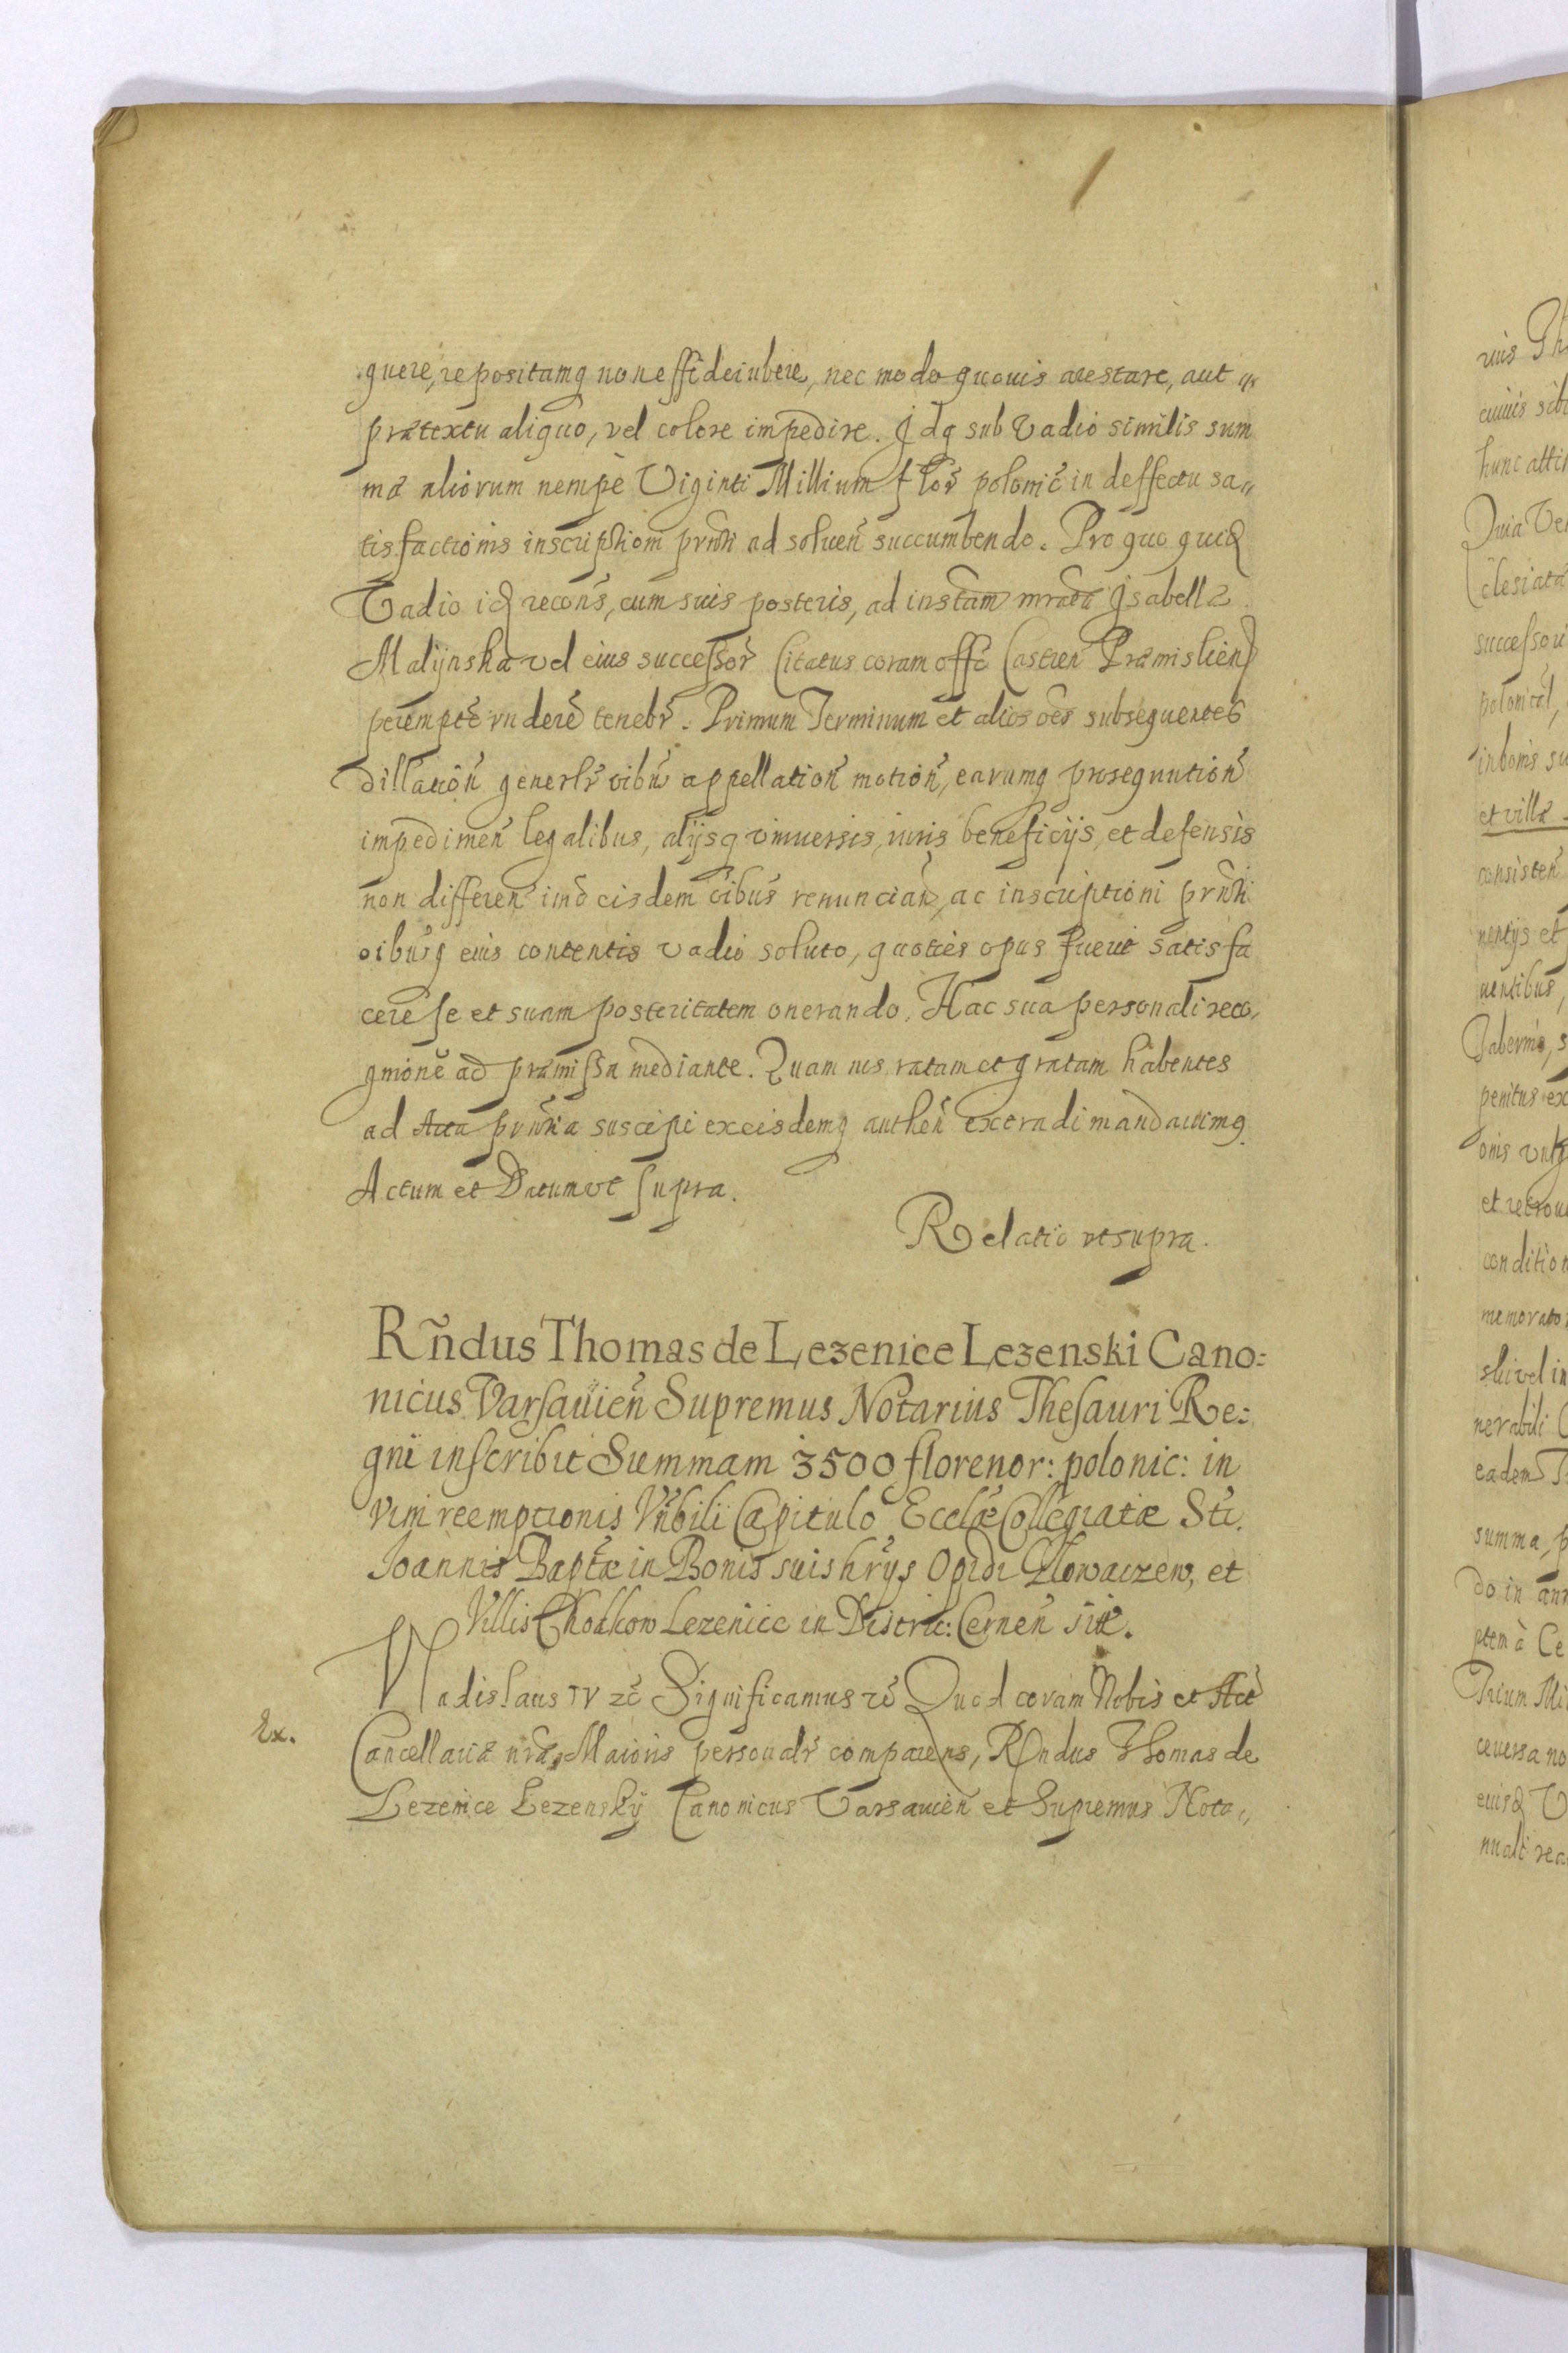 quere, repositamq non effideiubere, nec modo quouis arestare, aut
prætextu aliquo, vel colore impedire. Idq sub Vadio similis sum
mæ aliorum nempè Viginti Millium flor̃ polonic̃ in deffectu sa„
tisfactionis inscriptioni prñti ad soluen̄ succumbendo. Pro quo quidē
Vadio idē recon̄s, cum suis posteris, ad instam̄ Isabellæ
Malÿnska vel eius successor̃ Citatus coram offō Castren̄ Præmislien̄
peremptē rn̄dere tenebr̃. Primum Terminum et alios oēs subsequentes
dillation̄ generlr̃ oib̃ appellation̄ motion̄, earumq prosequution̄
impedimen̄ legalibus, alijsq vniuersis, iuris beneficÿs, et defensis
non differen̄ imò eisdem oībus renuncian̄, ac inscriptioni prñti
oibusq eius contentis vadio soluto, quoties opus fuerit satisfa
cere se et suam posteritatem onerando. Hac sua personali reco„
gnione ad præmissa mediante. Quam nos ratam et gratam habentes
ad Acta prñtia suscipi exeisdemq authen̄ extradi mandauimq.
Actum et Datum vt supra.
Relatio vt supra.
Rn̄dus Thomas de Lezenice Lezenski Cano:
nicus Varsauien̄ Supremus Notarius Thesauri Re:
gni inscribit Summam 3500 florenor: polonic: in
vim reemptionis Vn̄bili Capitulo Ecclæ Collegiatæ Sti.
Joannis Baptæ in Bonis suis hr̃ÿs Opidi Głowaczew, et
Villis Chodkow Lezenice in Distric: Cernen̄ sitē.
Ex.
Vladislaus IV zc̄ Significamus zc̄ Quod coram Nobis et Actē
Cancellariæ nr̃æ Maioris personalr̃ comparens, Rn̄dus Thomas de
Lezenice Lezenskÿ Canonicus Varsauien̄ et Supremus Nota„
rius Th
cuiuis sib
hunc atti
Quia Ve
clesiatæ
successori
polonical,
in bonis su
et villæ
consisten̄
nentÿs et
uentibus,
Tabernis, s
penitus ex
onis vulg
et retrou
condition
memorato
ski vel in
nerabili C
eadem T
summa, p
do in an
ptem à Ce
Trium Mi
ceuersa no
nuali rea